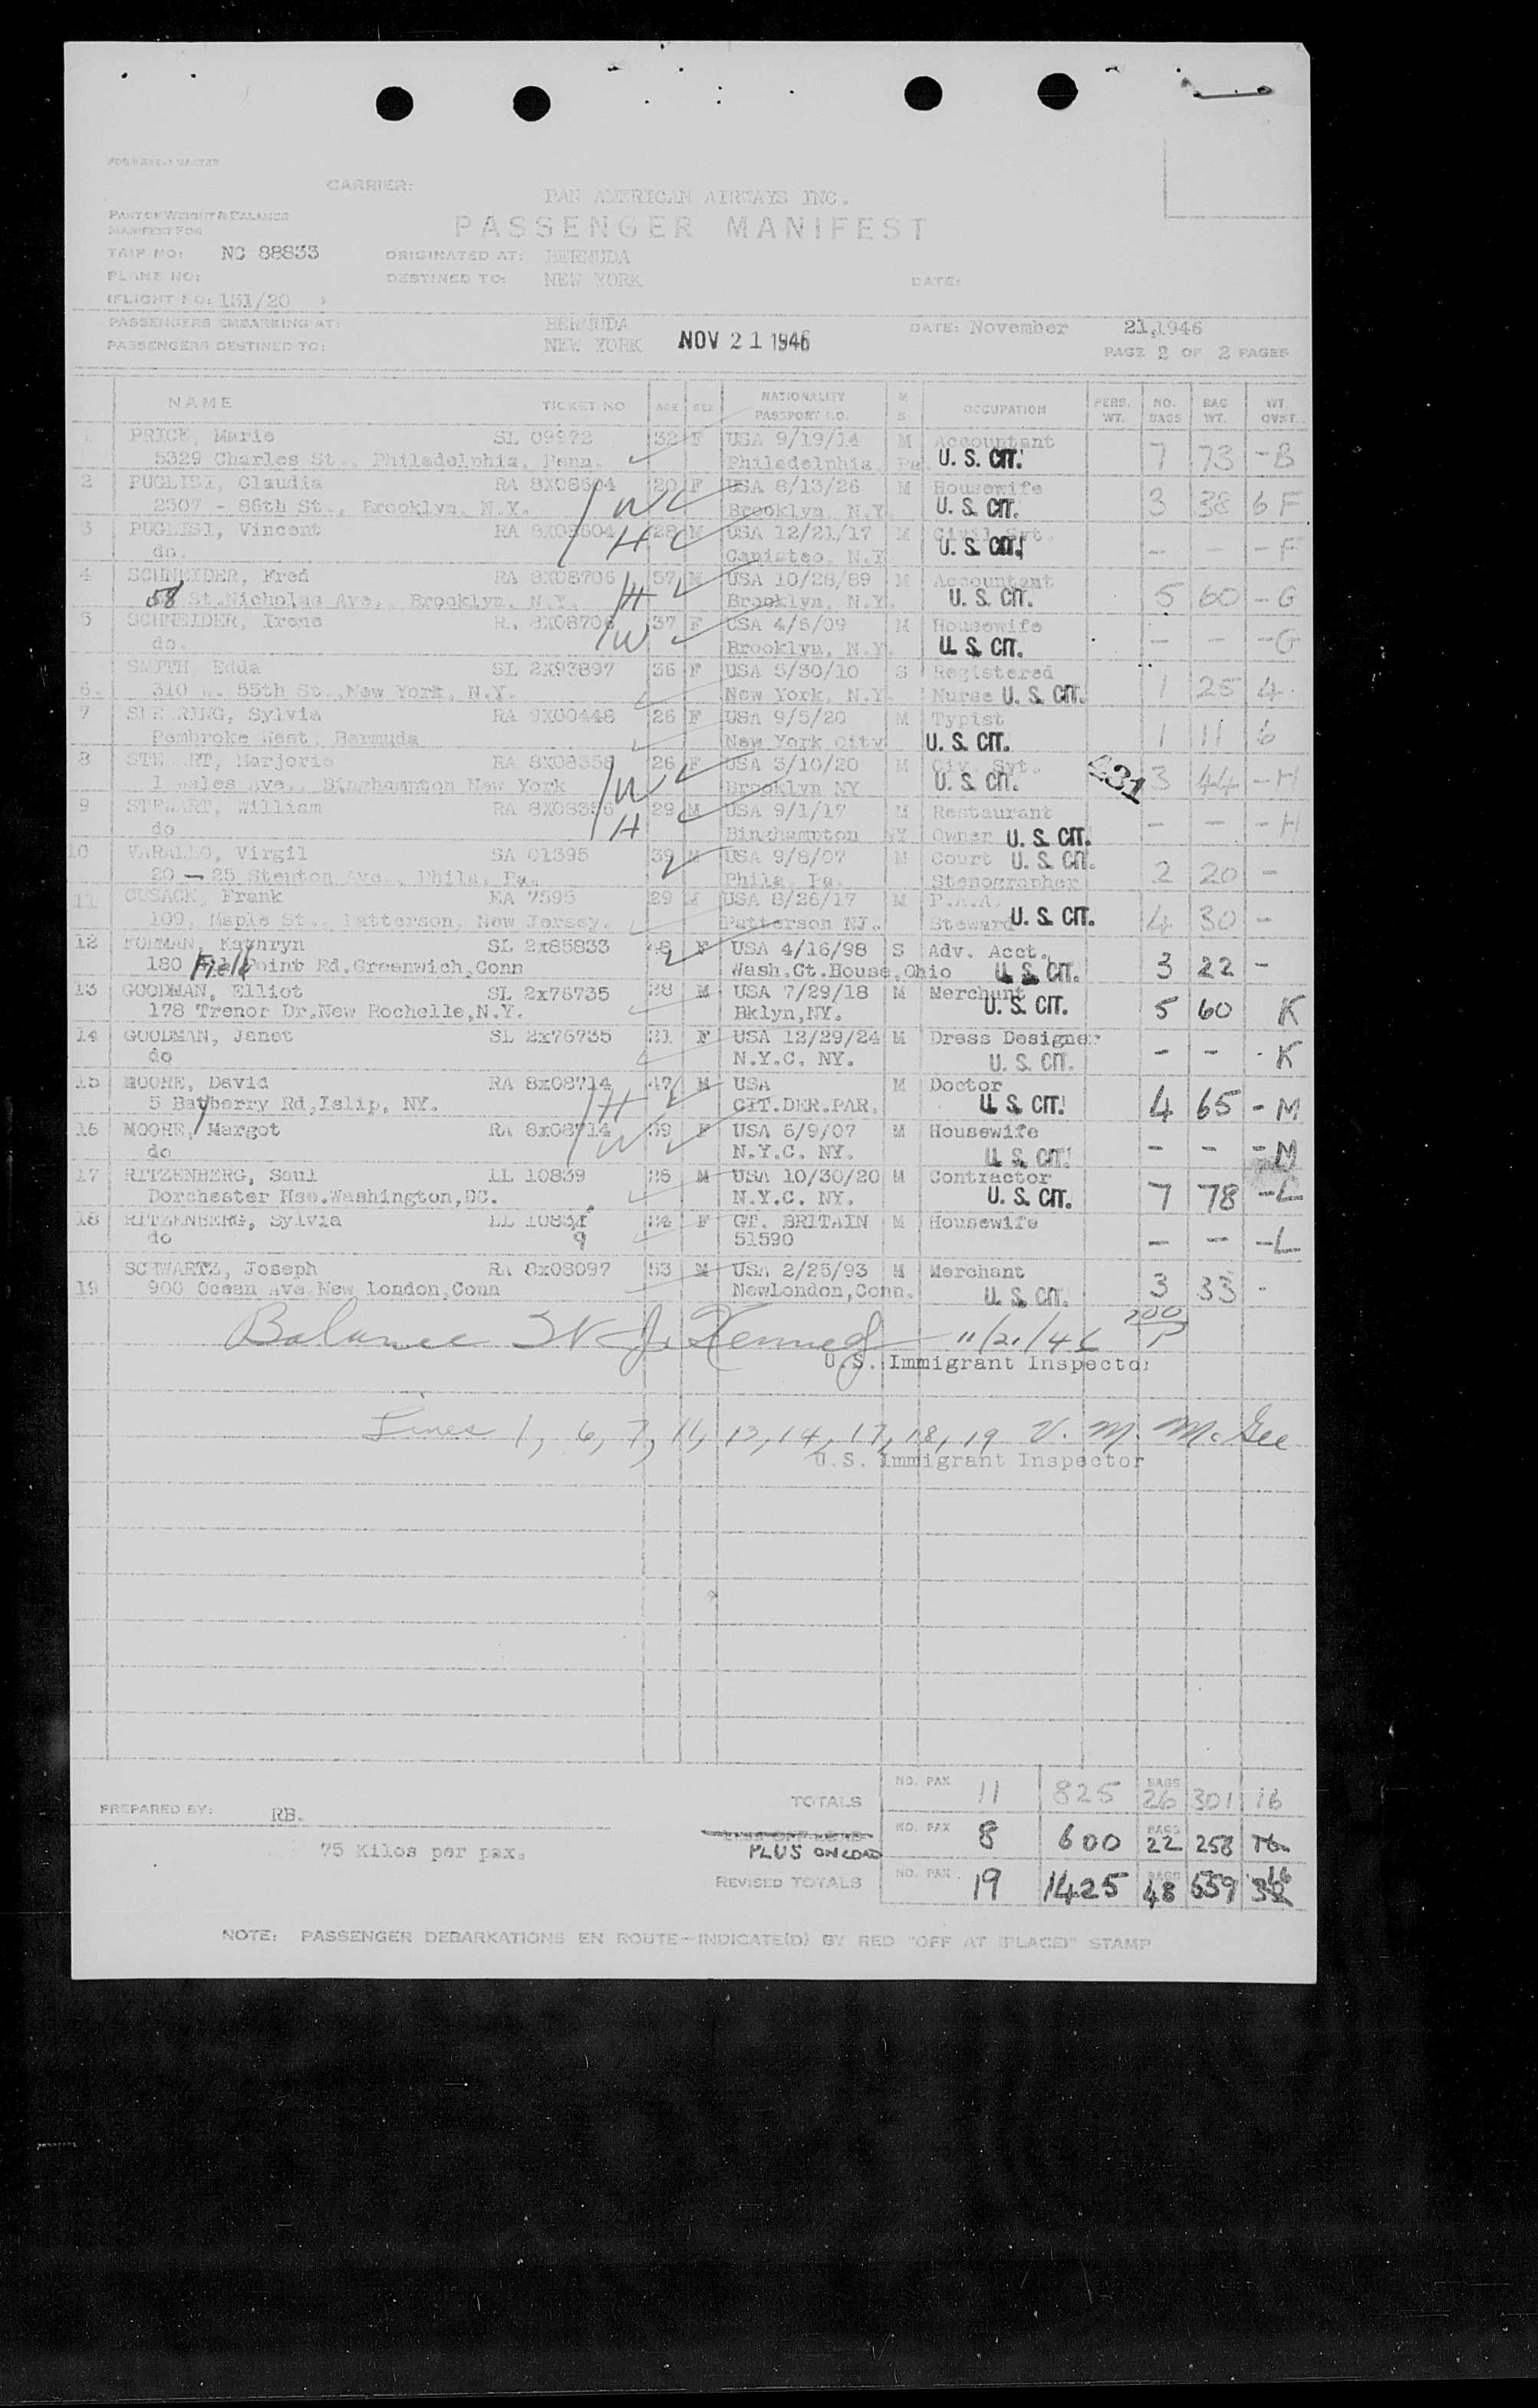 CARRIER: PAN AMERICAN AIRWAYS INC.
PART OF WEIGHT & BALANCE
MANIFEST FOR
PASSENGER MANIFEST
TRIP NO: NC 88833 ORIGINATED AT: BERMUDA
PLANE NO: DESTINED TO: NEW YORK DATE:
(FLIGHT NO: 151/20 )
PASSENGERS EMBARKING AT: BERMUDA DATE: November 21,1946
PASSENGERS DESTINED TO: NEW YORK NOV 21 1946 PAGE 2 OF 2 PAGES
NAME TICKET NO AGE SEX NATIONALITY PASSPORT NO. M S OCCUPATION PERS. WT. NO. BAGS BAG WT. WT. OVST.
1 PRICE, Marie SL 09972 32 F USA 9/19/14 M Accountant
5329 Charles St., Philadelphia, Penn. Philadelphia Pa. U. S. CIT. 7 73 - B
2 PUGLISI, Claudia RA 8X08604 20 F USA 8/13/26 M Housewife
2307 - 86th St., Brooklyn, N.Y. W Brooklyn, N.Y. U. S. CIT. 3 38 6 F
3 PUGLISI, Vincent RA 8X08604 28 M USA 12/21/17 M Civil Svt.
do. H Canisteo, N.Y. U. S. CIT. - - - F
4 SCHNEIDER, Fred RA 8X08706 57 M USA 10/28/89 M Accountant
58 St.Nicholas Ave., Brooklyn, N.Y. H Brooklyn, N.Y. U. S. CIT. 5 60 - G
5 SCHNEIDER, Irene RA 8X08706 37 F USA 4/6/09 M Housewife
do. W Brooklyn, N.Y. U. S. CIT. - - - G
SMITH, Edda SL 2X93897 36 F USA 5/30/10 S Registered
6. 310 W. 55th St.,New York, N.Y. New York, N.Y. Nurse U. S. CIT. 1 25 4
7 Sylvia RA 9X00448 26 F USA 9/5/20 M Typist
Pembroke West, Bermuda New York City U. S. CIT. 1 11 6
8 STEWART, Marjorie RA 8X08356 26 F USA 3/10/20 M Civ. Svt. 231
1 Wales Ave., Binghampton New York W Brooklyn NY U. S. CIT. 3 44 - H
9 STEWART, William RA 8X08356 29 M USA 9/1/17 M Restaurant
do H Binghampton NY Owner U. S. CIT. - - - H
10 VARALLO, Virgil SA 01395 39 M USA 9/8/07 M Court U. S. CIT.
20 - 25 Stenton Ave., Phila. Pa. Phila. Pa. Stenographer 2 20 -
11 CUSACK, Frank EA 7595 29 M USA 8/26/17 M P.A.A.
109, Maple St., Patterson, New Jersey. Patterson NJ. Steward U. S. CIT. 4 30 -
12 FORMAN, Kathryn SL 2x85833 48 F USA 4/16/98 S Adv. Acct.
180 Field Point Rd.Greenwich,Conn Wash.Ct.House,Ohio U. S. CIT. 3 22 -
13 GOODMAN, Elliot SL 2x76735 28 M USA 7/29/18 M Merchant
178 Trenor Dr.New Rochelle,N.Y. Bklyn,NY. U. S. CIT. 5 60 K
14 GOODMAN, Janet SL 2x76735 21 F USA 12/29/24 M Dress Designer
do N.Y.C. NY. U. S. CIT. - - - K
15 MOORE, David RA 8x08714 47 M USA M Doctor
5 Bayberry Rd,Islip, NY. H CIT.DER.PAR. U. S. CIT. 4 65 - M
16 MOORE, Margot RA 8x08714 39 F USA 6/9/07 M Housewife
do W N.Y.C. NY. U. S. CIT. - - - M
17 RITZENBERG, Saul LL 10839 26 M USA 10/30/20 M Contractor
Dorchester Hse.Washington,DC. N.Y.C. NY. U. S. CIT. 7 78 - L
18 RITZENBERG, Sylvia LL 10839 24 F GT. BRITAIN M Housewife
do 51590 - - - L
SCHWARTZ, Joseph RA 8x08097 53 M USA 2/25/93 M Merchant
19 900 Ocean Ave New London,Conn NewLondon,Conn. U. S. CIT. 3 33 -
Balance J. Kennedy 11/21/46 200 P
U.S. Immigrant Inspector
Lines 1, 6, 7, 11, 13, 14, 17, 18, 19 V. M. McGee
U.S. Immigrant Inspector
TOTALS NO. PAX 11 825 BAGS 26 301 16
PREPARED BY: RB.
PLUS ONLOAD NO. PAX 8 600 BAGS 22 258
75 Kilos per pax.
REVISED TOTALS NO. PAX 19 1425 BAGS 48 559 16
NOTE: PASSENGER DEBARKATIONS EN ROUTE-INDICATE(D) BY RED "OFF AT (PLACE)" STAMP